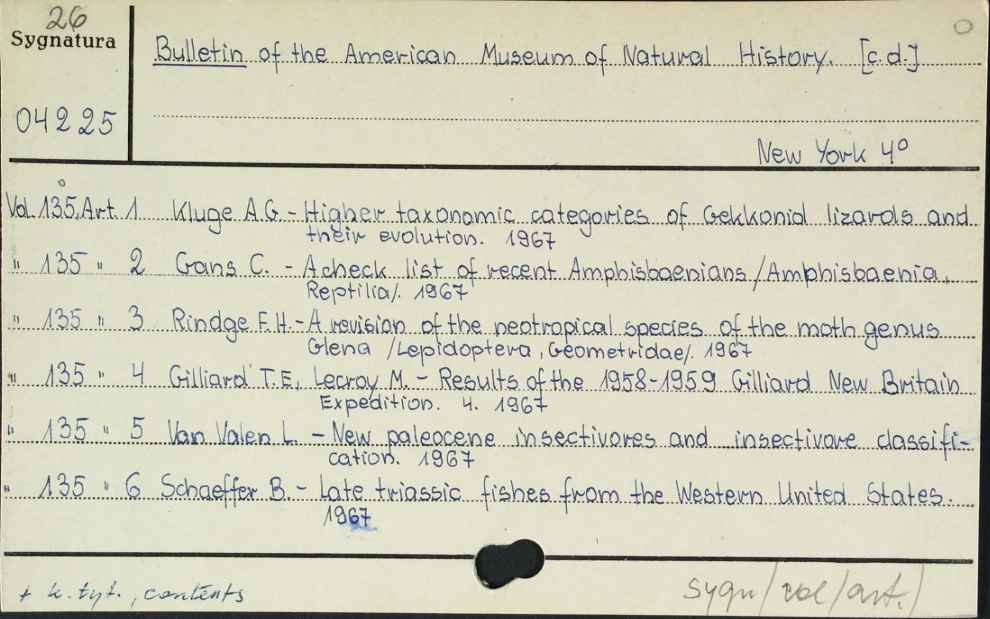 26
Sygnatura
04225
Bulletin of the American Museum of Natural History. [c.d.]
New York 4º
Vol. 135, Art. 1 Kluge A.G. - Higher taxonomic categories of Gekkonid lizards and
their evolution. 1967
" 135 " 2 Gans C. - A check list of recent Amphisbaenians /Amphisbaenia,
Reptilia/. 1967
" 135 " 3 Rindge F.H. - A revision of the neotropical species of the moth genus
Glena /Lepidoptera, Geometridae/. 1967
" 135 " 4 Gilliard T.E, Lecroy M. - Results of the 1958-1959 Gilliard New Britain
Expedition. 4. 1967
" 135 " 5 Van Valen L. - New paleocene insectivores and insectivore classifi-
cation. 1967
" 135 " 6 Schaeffer B. - Late triassic fishes from the Western United States.
1967
+ k. tyt., contents
sygn/vol/art./